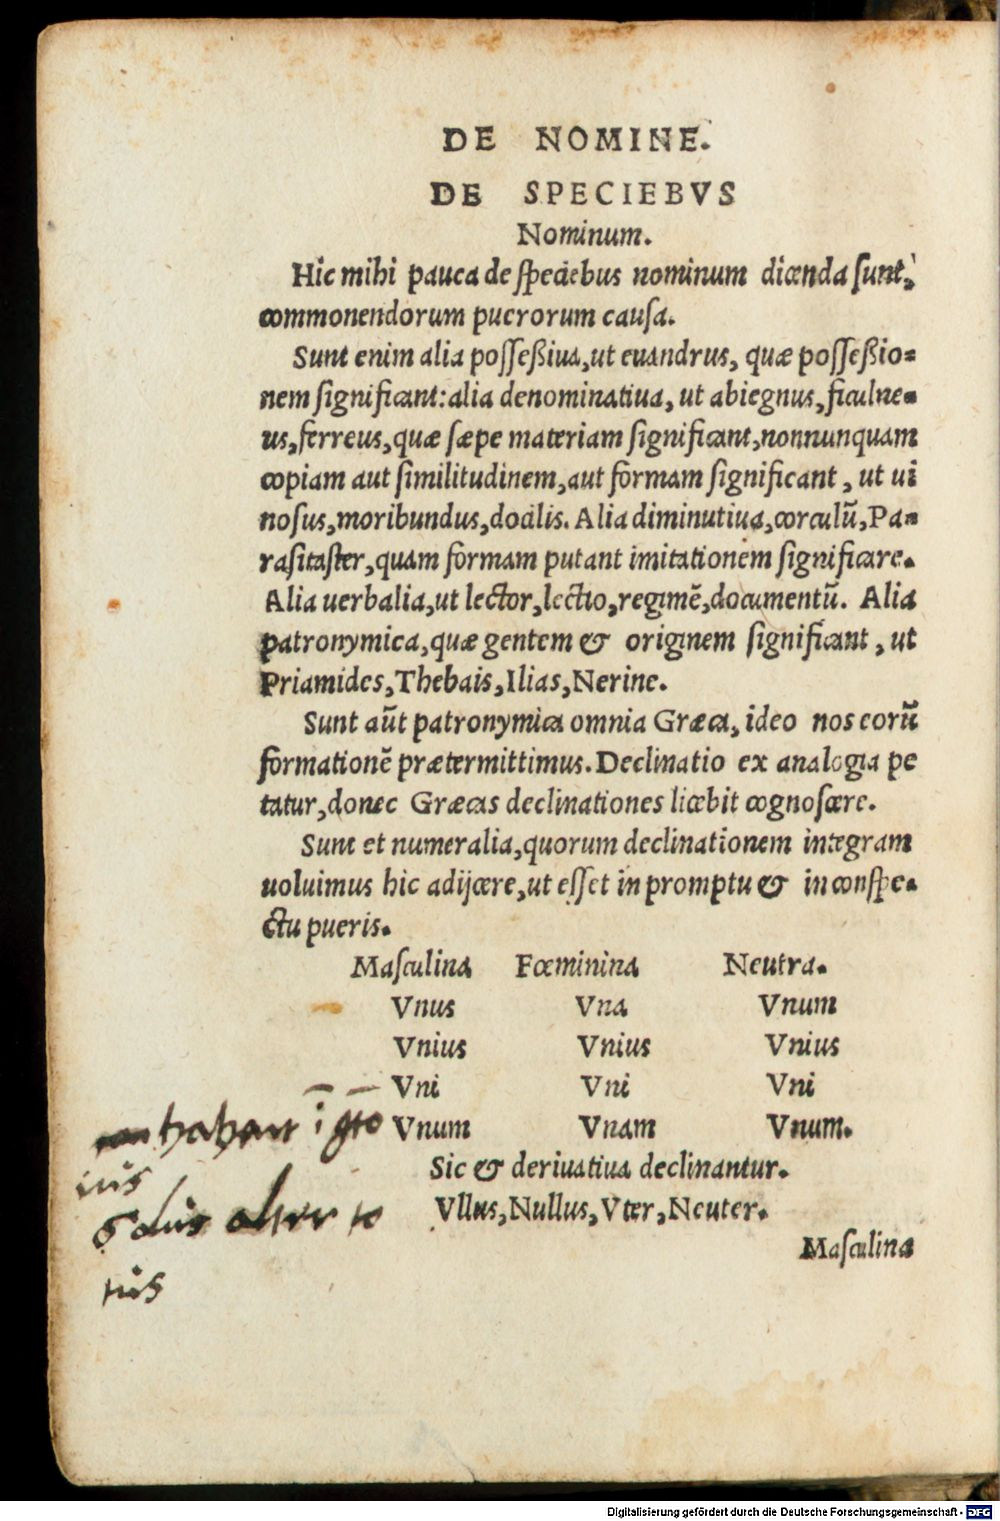 DE NOMINE.
DE SPECIEBVS
Nominum.
Hic mihi pauca de speciebus nominum dicenda sunt,
commonendorum puerorum causa.
Sunt enim alia possessiua, ut euandrus, quæ possessio=
nem significant: alia denominatiua, ut abiegnus, ficulne=
us, ferreus, quæ sæpe materiam significant, nonnunquam
copiam aut similitudinem, aut formam significant, ut ui
nosus, moribundus, docilis. Alia diminutiua, corculũ, Pa=
rasitaster, quam formam putant imitationem significare.
Alia uerbalia, ut lector, lectio, regimẽ, documentũ. Alia
patronymica, quæ gentem & originem significant, ut
Priamides, Thebais, Ilias, Nerine.
Sunt aũt patronymica omnia Græca, ideo nos eorũ
formationẽ prætermittimus. Declinatio ex analogia pe
tatur, donec Græcas declinationes licebit cognoscere.
Sunt et numeralia, quorum declinationem integram
uoluimus hic adijcere, ut esset in promptu & in conspe=
ctu pueris.
Masculina Fœminina Neutra.
Vnus Vna Vnum
Vnius Vnius Vnius
Vni Vni Vni
Vnum Vnam Vnum.
habent ī gto
ius
Sic & deriuatiua declinantur.
Solus alter to
Vllus, Nullus, Vter, Neuter.
tus
Masculina
Digitalisierung gefördert durch die Deutsche Forschungsgemeinschaft - DFG